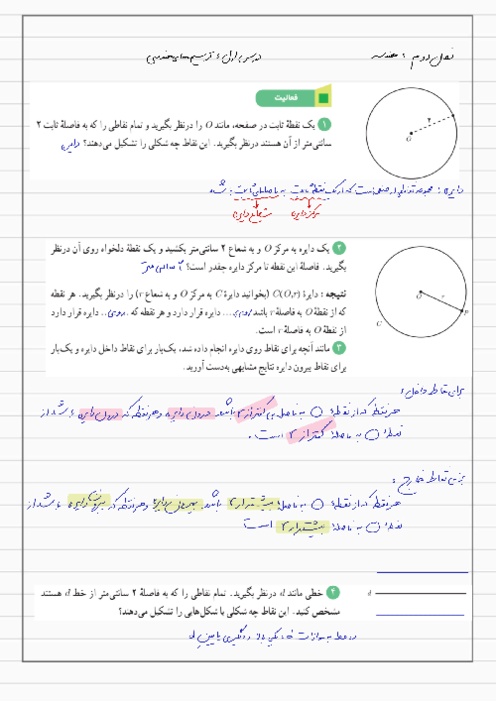 فصل دوم : هندسه
درس اول : ترسیم های هندسی
فعالیت
۱ یک نقطهٔ ثابت در صفحه، مانند O را درنظر بگیرید و تمام نقاطی را که به فاصلهٔ ثابت ۲
سانتی‌متر از آن هستند درنظر بگیرید. این نقاط چه شکلی را تشکیل می‌دهند؟ دایره
۲
O
دایره : مجموعه نقاطی از صفحه است که از یک نقطه ثابت به فاصله ای ثابت باشد
مرکز دایره شعاع دایره
۲ یک دایره به مرکز O و به شعاع ۲ سانتی‌متر بکشید و یک نقطهٔ دلخواه روی آن درنظر
بگیرید. فاصلهٔ این نقطه تا مرکز دایره چقدر است؟ ۲ سانتی متر
نتیجه : دایرهٔ C(O,r) (بخوانید دایرهٔ C به مرکز O و به شعاع r) را درنظر بگیرید. هر نقطه
که از نقطهٔ O به فاصلهٔ r باشد روی دایره قرار دارد و هر نقطه که روی دایره قرار دارد
از نقطهٔ O به فاصلهٔ r است.
۳ مانند آنچه برای نقاط روی دایره انجام داده شد، یک‌بار برای نقاط داخل دایره و یک‌بار
برای نقاط بیرون دایره نتایج مشابهی به‌دست آورید.
O
r
P
C
برای نقاط داخل :
هر نقطه که از نقطهٔ O به فاصله ی کمتر از r باشد درون دایره و هر نقطه که درون دایره باشد از
نقطهٔ O به فاصلهٔ کمتر از r است .
برای نقاط خارج :
هر نقطه که از نقطهٔ O به فاصلهٔ بیشتر از r باشد بیرون دایره و هر نقطه که بیرون دایره باشد از
نقطهٔ O به فاصلهٔ بیشتر از r است
۴ خطی مانند d درنظر بگیرید. تمام نقاطی را که به فاصلهٔ ۲ سانتی‌متر از خط d هستند
مشخص کنید. این نقاط چه شکلی یا شکل‌هایی را تشکیل می‌دهند؟
d
دو خط به موازات d ، یکی بالا و دیگری پایین d